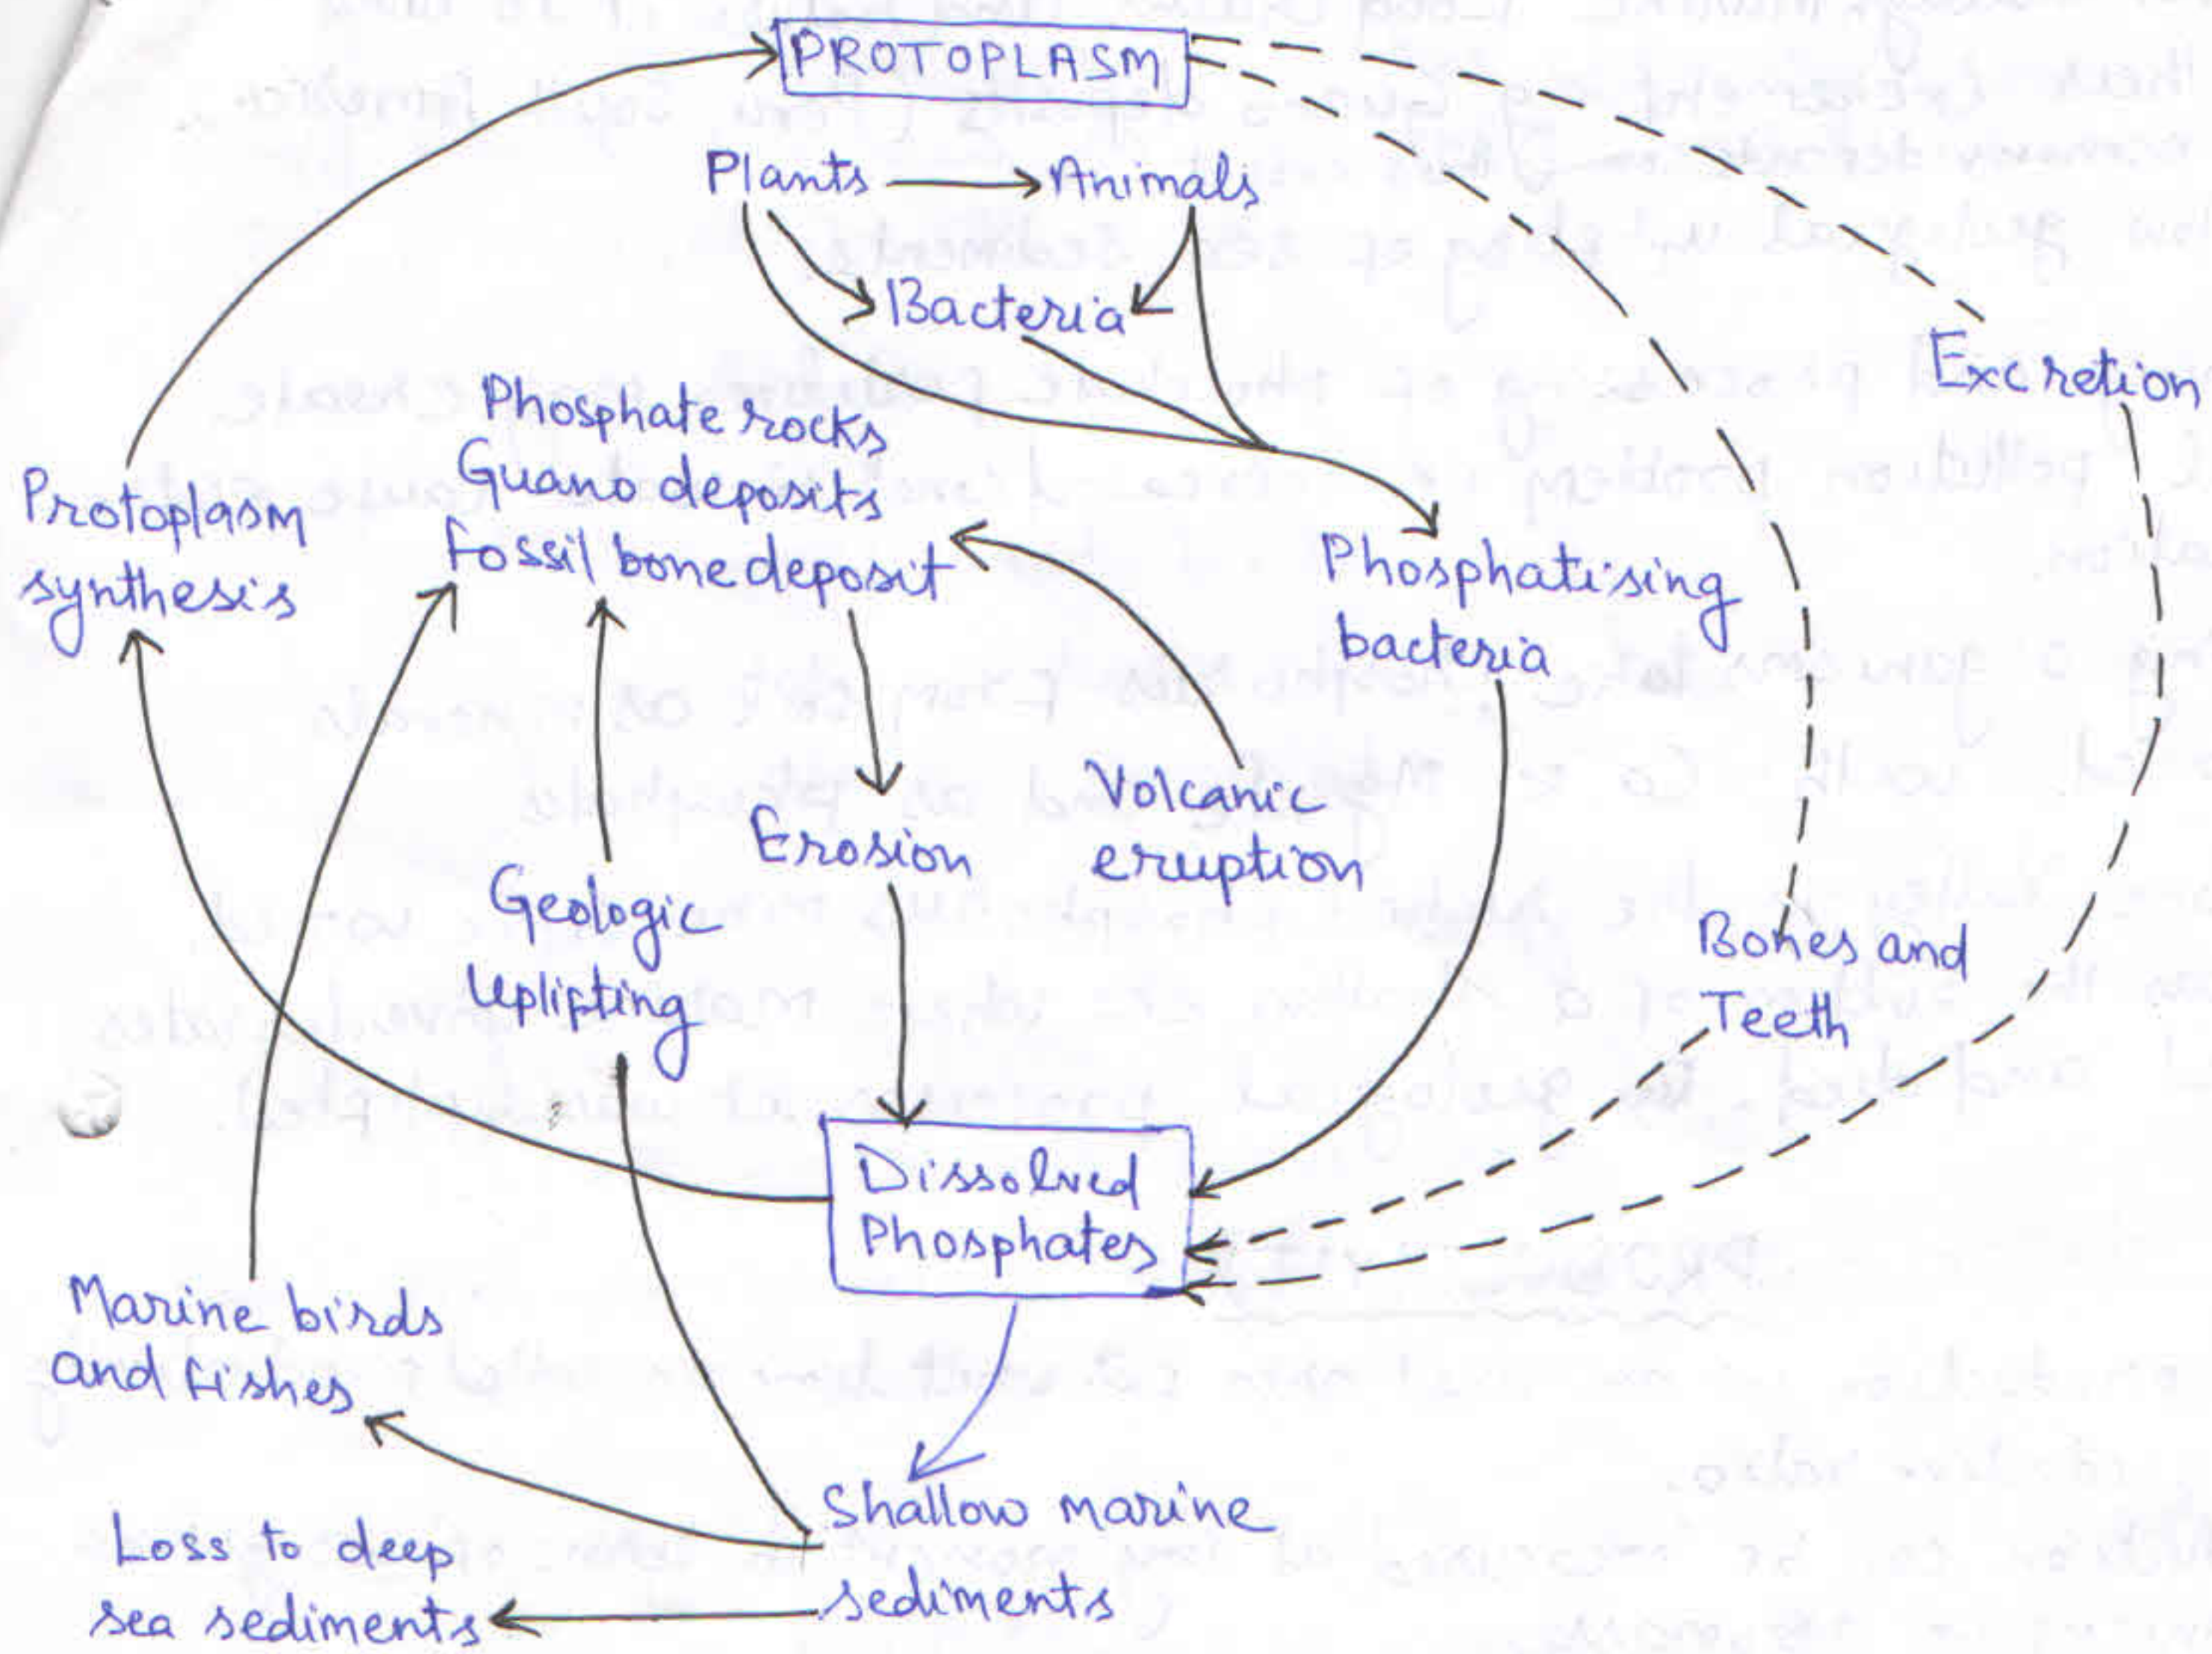 PROTOPLASM
Plants
Animals
Bacteria
Excretion
Phosphate rocks
Guano deposits
Fossil bone deposit
Protoplasm
synthesis
Phosphatising
bacteria
Volcanic
eruption
Erosion
Geologic
Uplifting
Bones and
Teeth
Dissolved
Phosphates
Marine birds
and fishes
Shallow marine
sediments
Loss to deep
sea sediments